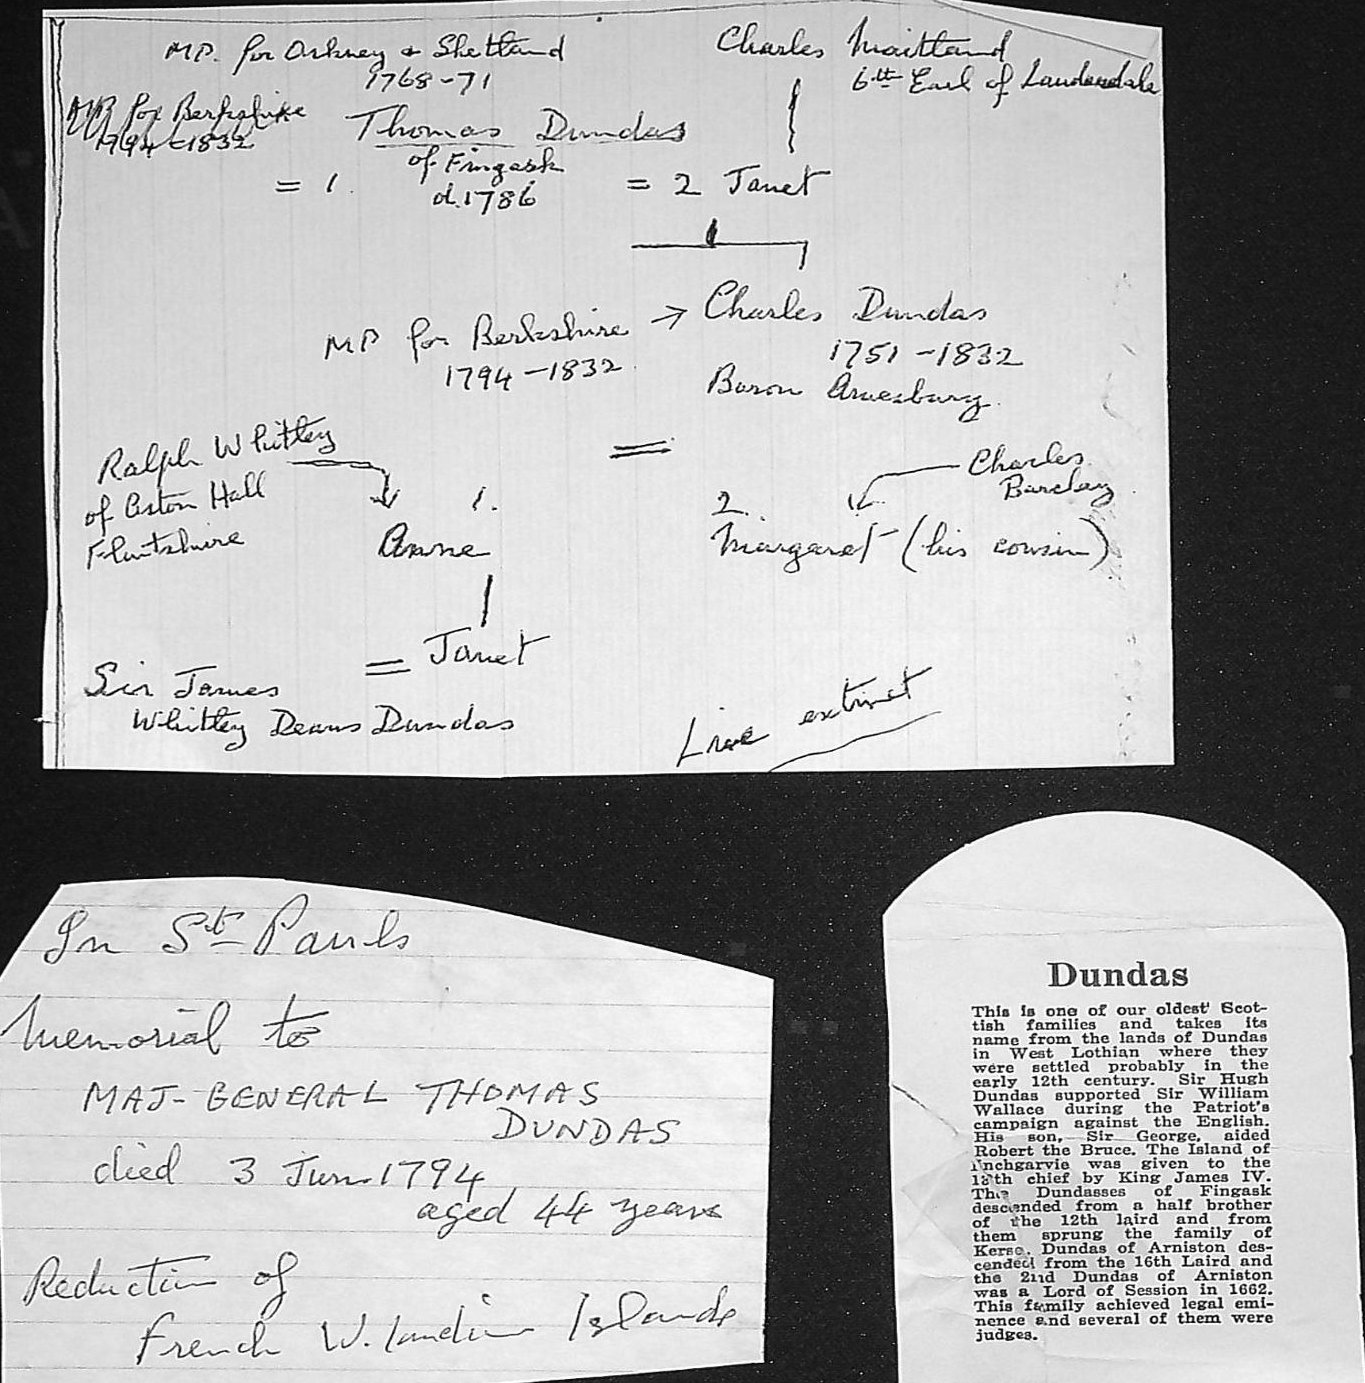 MP. for Orkney & Shetland
1768-71
MP for Berkshire
1794-1832
Charles Maitland
6th Earl of Lauderdale
Thomas Dundas
of Fingask
d.1786
= 1.
= 2 Janet
MP for Berkshire → Charles Dundas
1794-1832.
1751-1832
Baron Amesbury.
Ralph Whitley
of Aston Hall
Flintshire
=
Charles
Barclay
1.
2.
Anne
Margaret (his cousin)
= Janet
Sir James
Whitley Deans Dundas
Line extinct
In St Pauls
Memorial to
MAJ-GENERAL THOMAS
DUNDAS
died 3 Jun 1794
aged 44 years
Reduction of
French W. Indian Islands
Dundas
This is one of our oldest Scot-
tish families and takes its
name from the lands of Dundas
in West Lothian where they
were settled probably in the
early 12th century. Sir Hugh
Dundas supported Sir William
Wallace during the Patriot's
campaign against the English.
His son, Sir George, aided
Robert the Bruce. The Island of
Inchgarvie was given to the
18th chief by King James IV.
The Dundasses of Fingask
descended from a half brother
of the 12th laird and from
them sprung the family of
Kerse. Dundas of Arniston des-
cended from the 16th Laird and
the 2nd Dundas of Arniston
was a Lord of Session in 1662.
This family achieved legal emi-
nence and several of them were
judges.